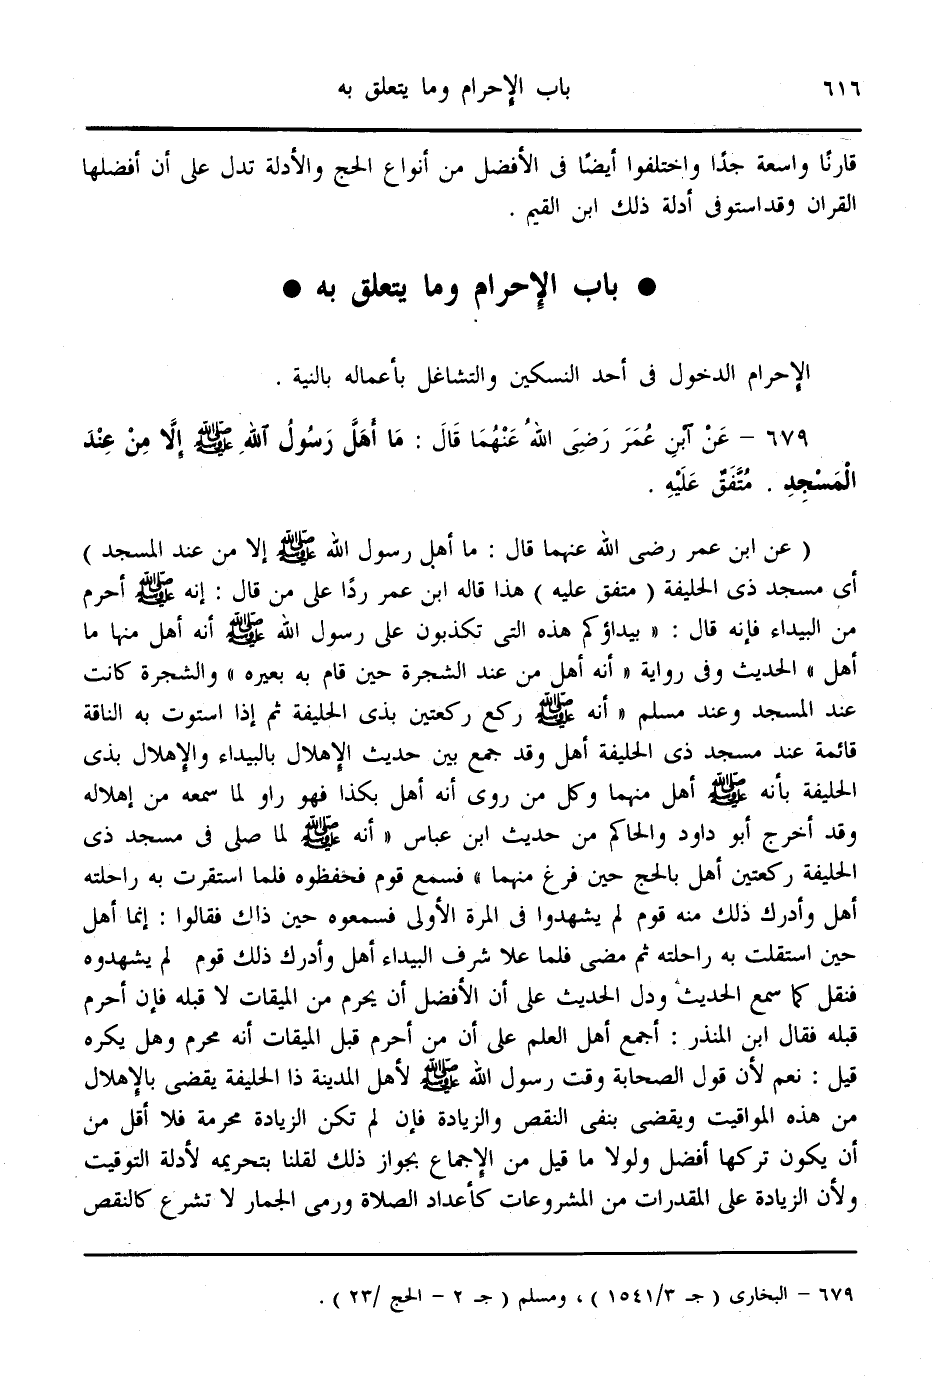 ٦١٦ باب الإحرام وما يتعلق به
قارنًا واسعة جدًا واختلفوا أيضًا فى الأفضل من أنواع الحج والأدلة تدل على أن أفضلها
القران وقداستوفى أدلة ذلك ابن القيم .
● باب الإحرام وما يتعلق به ●
الإحرام الدخول فى أحد النسكين والتشاغل بأعماله بالنية .
٦٧٩ – عَنْ ٱبْنِ عُمَرَ رَضِىَ اللهُ عَنْهُمَا قَالَ : مَا أَهَلَّ رَسُولُ ٱللهِ ﷺ إِلَّا مِنْ عِنْدَ
الْمَسْجِدِ . مُتَّفَقٌ عَلَيْهِ .
( عن ابن عمر رضى الله عنهما قال : ما أهل رسول الله ﷺ إلا من عند المسجد )
أى مسجد ذى الحليفة ( متفق عليه ) هذا قاله ابن عمر ردًا على من قال : إنه ﷺ أحرم
من البيداء فإنه قال : « بيداؤكم هذه التى تكذبون على رسول الله ﷺ أنه أهل منها ما
أهل » الحديث وفى رواية « أنه أهل من عند الشجرة حين قام به بعيره » والشجرة كانت
عند المسجد وعند مسلم « أنه ﷺ ركع ركعتين بذى الحليفة ثم إذا استوت به الناقة
قائمة عند مسجد ذى الحليفة أهل وقد جمع بين حديث الإهلال بالبيداء والإهلال بذى
الحليفة بأنه ﷺ أهل منهما وكل من روى أنه أهل بكذا فهو راو لما سمعه من إهلاله
وقد أخرج أبو داود والحاكم من حديث ابن عباس « أنه ﷺ لما صلى فى مسجد ذى
الحليفة ركعتين أهل بالحج حين فرغ منهما » فسمع قوم فحفظوه فلما استقرت به راحلته
أهل وأدرك ذلك منه قوم لم يشهدوا فى المرة الأولى فسمعوه حين ذاك فقالوا : إنما أهل
حين استقلت به راحلته ثم مضى فلما علا شرف البيداء أهل وأدرك ذلك قوم لم يشهدوه
فنقل كما سمع الحديث ودل الحديث على أن الأفضل أن يحرم من الميقات لا قبله فإن أحرم
قبله فقال ابن المنذر : أجمع أهل العلم على أن من أحرم قبل الميقات أنه محرم وهل يكره
قيل : نعم لأن قول الصحابة وقت رسول الله ﷺ لأهل المدينة ذا الحليفة يقضى بالإهلال
من هذه المواقيت ويقضى بنفى النقص والزيادة فإن لم تكن الزيادة محرمة فلا أقل من
أن يكون تركها أفضل ولولا ما قيل من الإجماع بجواز ذلك لقلنا بتحريمه لأدلة التوقيت
ولأن الزيادة على المقدرات من المشروعات كأعداد الصلاة ورمى الجمار لا تشرع كالنقص
٦٧٩ – البخارى ( جـ ١٥٤١/٣ ) ، ومسلم ( جـ ٢ – الحج /٢٣ ) .